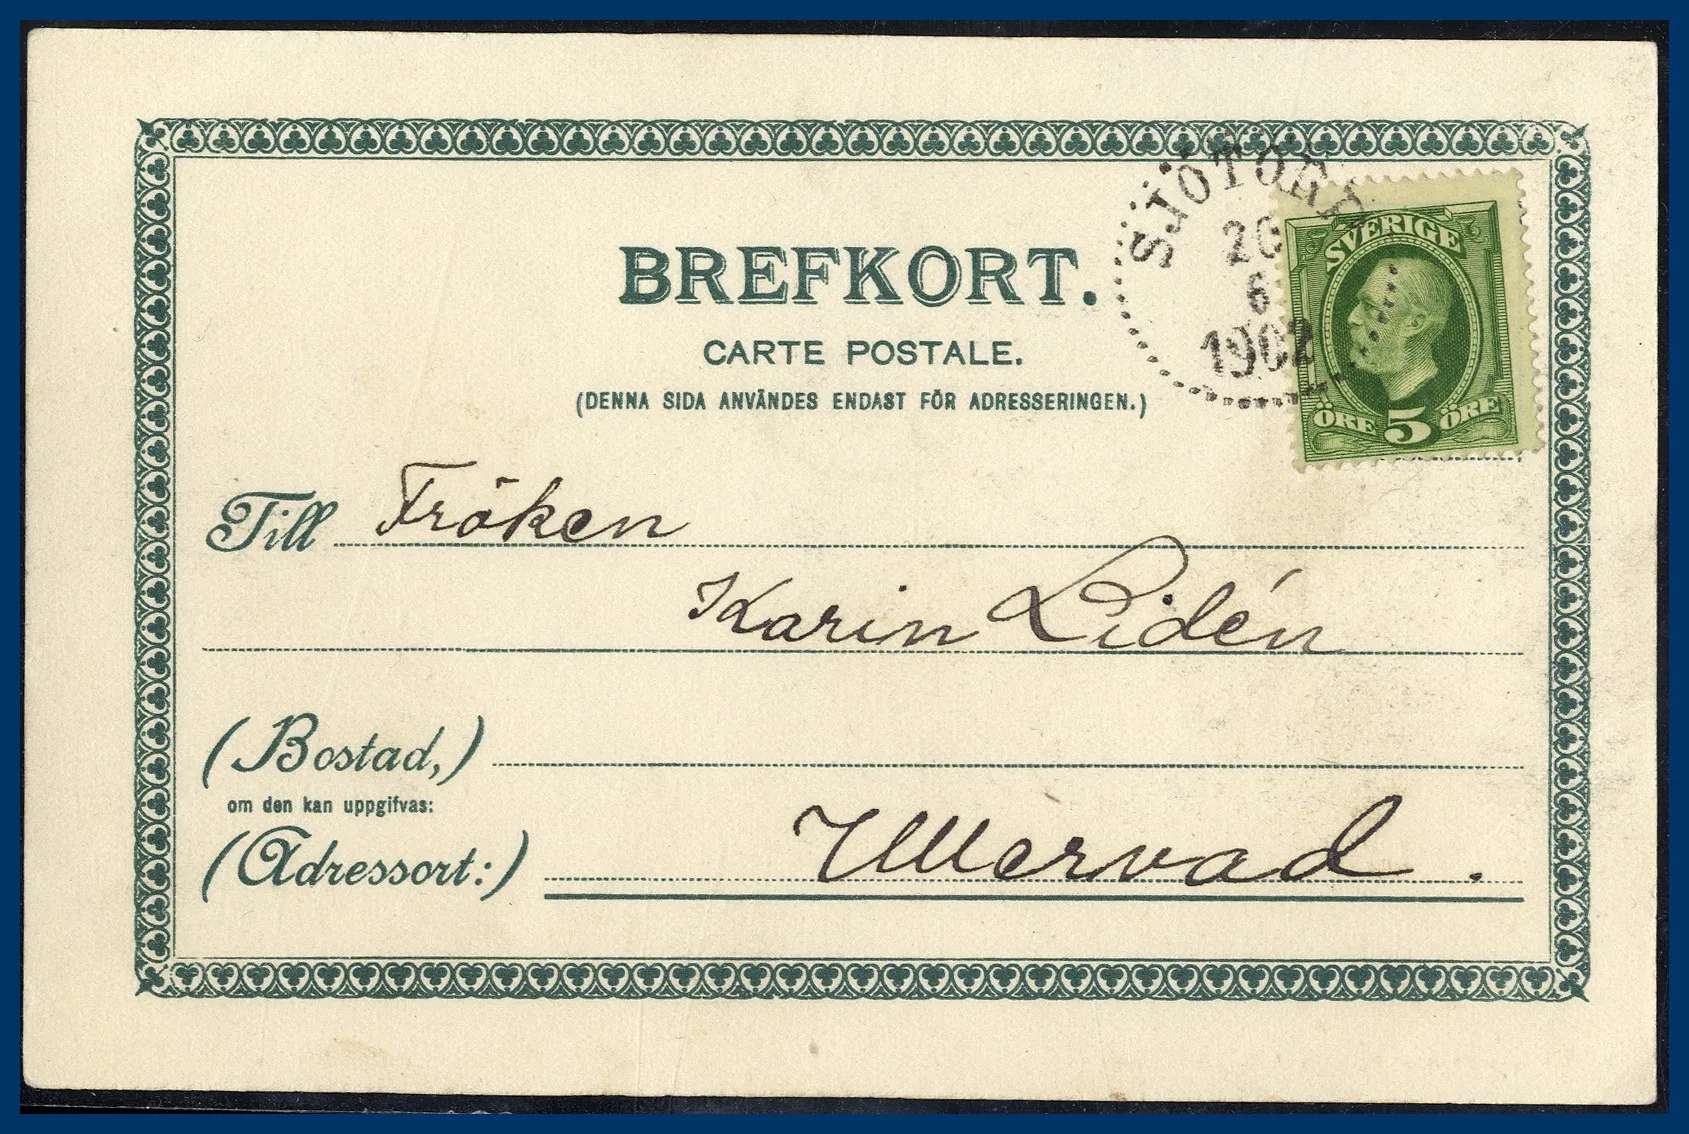 BREFKORT.
CARTE POSTALE.
(DENNA SIDA ANVÄNDES ENDAST FÖR ADRESSERINGEN.)
SJÖTORP
20
6
1902
SVERIGE
ÖRE 5 ÖRE
Till Fröken
Karin Lidén
(Bostad,)
om den kan uppgifvas:
(Adressort:) Ullervad.